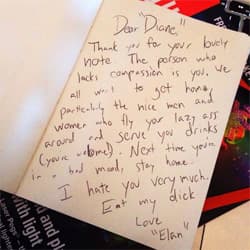 Dear "Diane,"
Thank you for your lovely
note. The person who
lacks compassion is you. We
all want to get home,
particularly the nice men and
women who fly your lazy ass
around and serve you drinks
(you're welcome). Next time you're
in a bad mood, stay home.
I hate you very much.
Eat my dick
Love
"Elan"